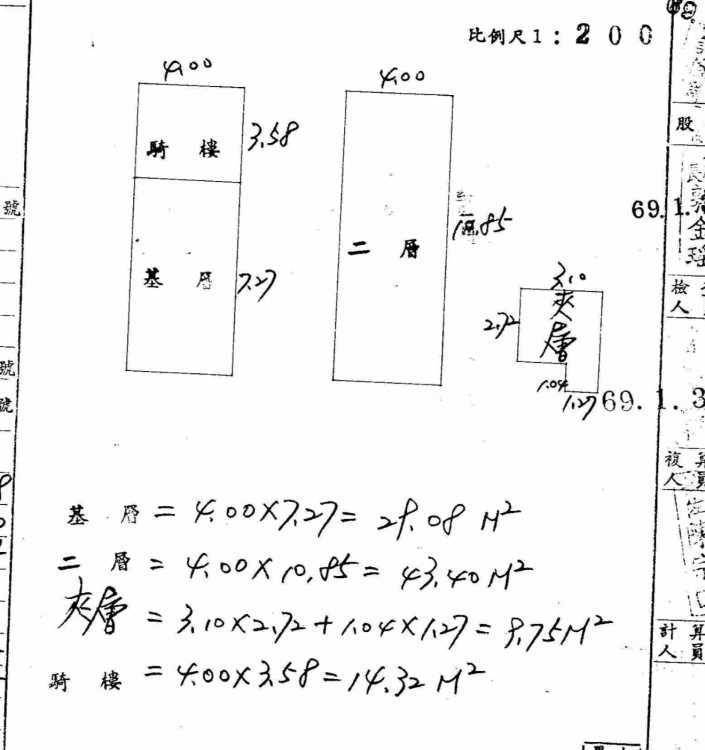 比例尺1:200
4.00
騎樓
3.58
基層
7.27
4.00
二層
10.85
69.1.
3.10
夾層
2.72
1.04
1.27
69.1.3
號
號
號
股
檢
人
複算
人員
計算
人員
基層 = 4.00×7.27 = 29.08 M²
二層 = 4.00×10.85 = 43.40 M²
夾層 = 3.10×2.72 + 1.04×1.27 = 9.75 M²
騎樓 = 4.00×3.58 = 14.32 M²